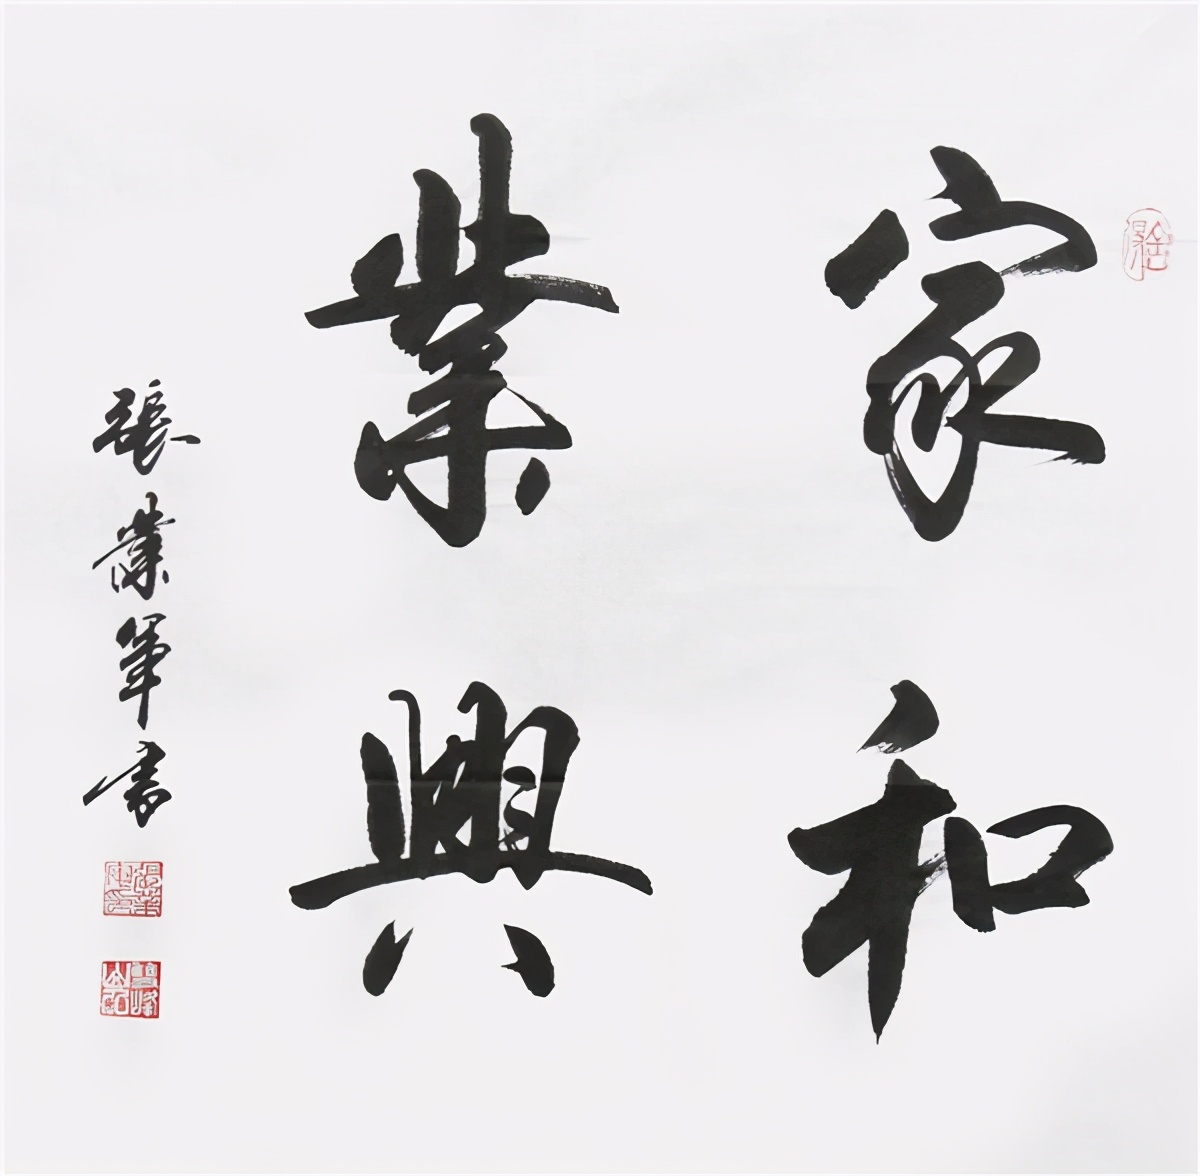 家和
業興
張業軍書